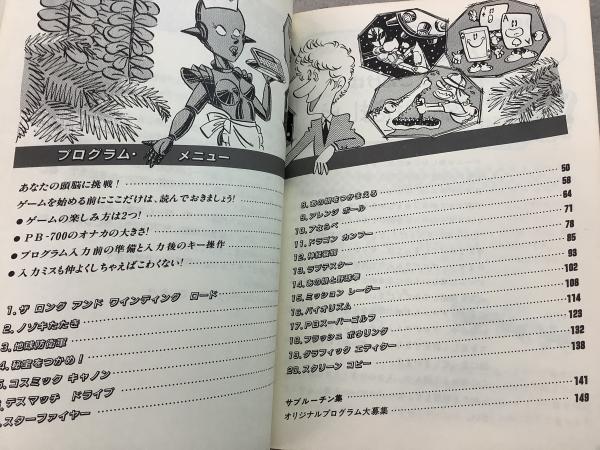 プログラム・メニュー
あなたの頭脳に挑戦!
ゲームを始める前にここだけは、読んでおきましょう!
●ゲームの楽しみ方は2つ!
●PB-700のオナカの大きさ!
●プログラム入力前の準備と入力後のキー操作
●入力ミスも仲よくしちゃえばこわくない!
1.ザ ロング アンド ワインディング ロード
2.ノゾキたたき
3.地球防衛軍
4.秘宝をつかめ!
5.コスミック キャノン
デスマッチ ドライブ
スターファイヤー
8.あの娘をつかまえろ 50
9.アレンジ ボール 58
10.7ならべ 64
11.ドラゴン カンフー 71
12.神経衰弱 78
13.ラブテスター 85
14.あの娘と野球拳 93
15.ミッション レーダー 102
16.バイオリズム 108
17.PBスーパーゴルフ 114
18.フラッシュ ボウリング 123
19.グラフィック エディター 132
20.スクリーン コピー 138
サブルーチン集 141
オリジナルプログラム大募集 149